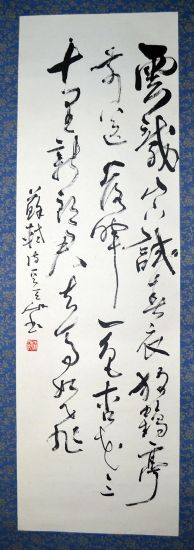 雲龍山下試春衣放鶴亭
前送落暉一色杏花三
十里新郎君去馬如飛
蘇軾詩